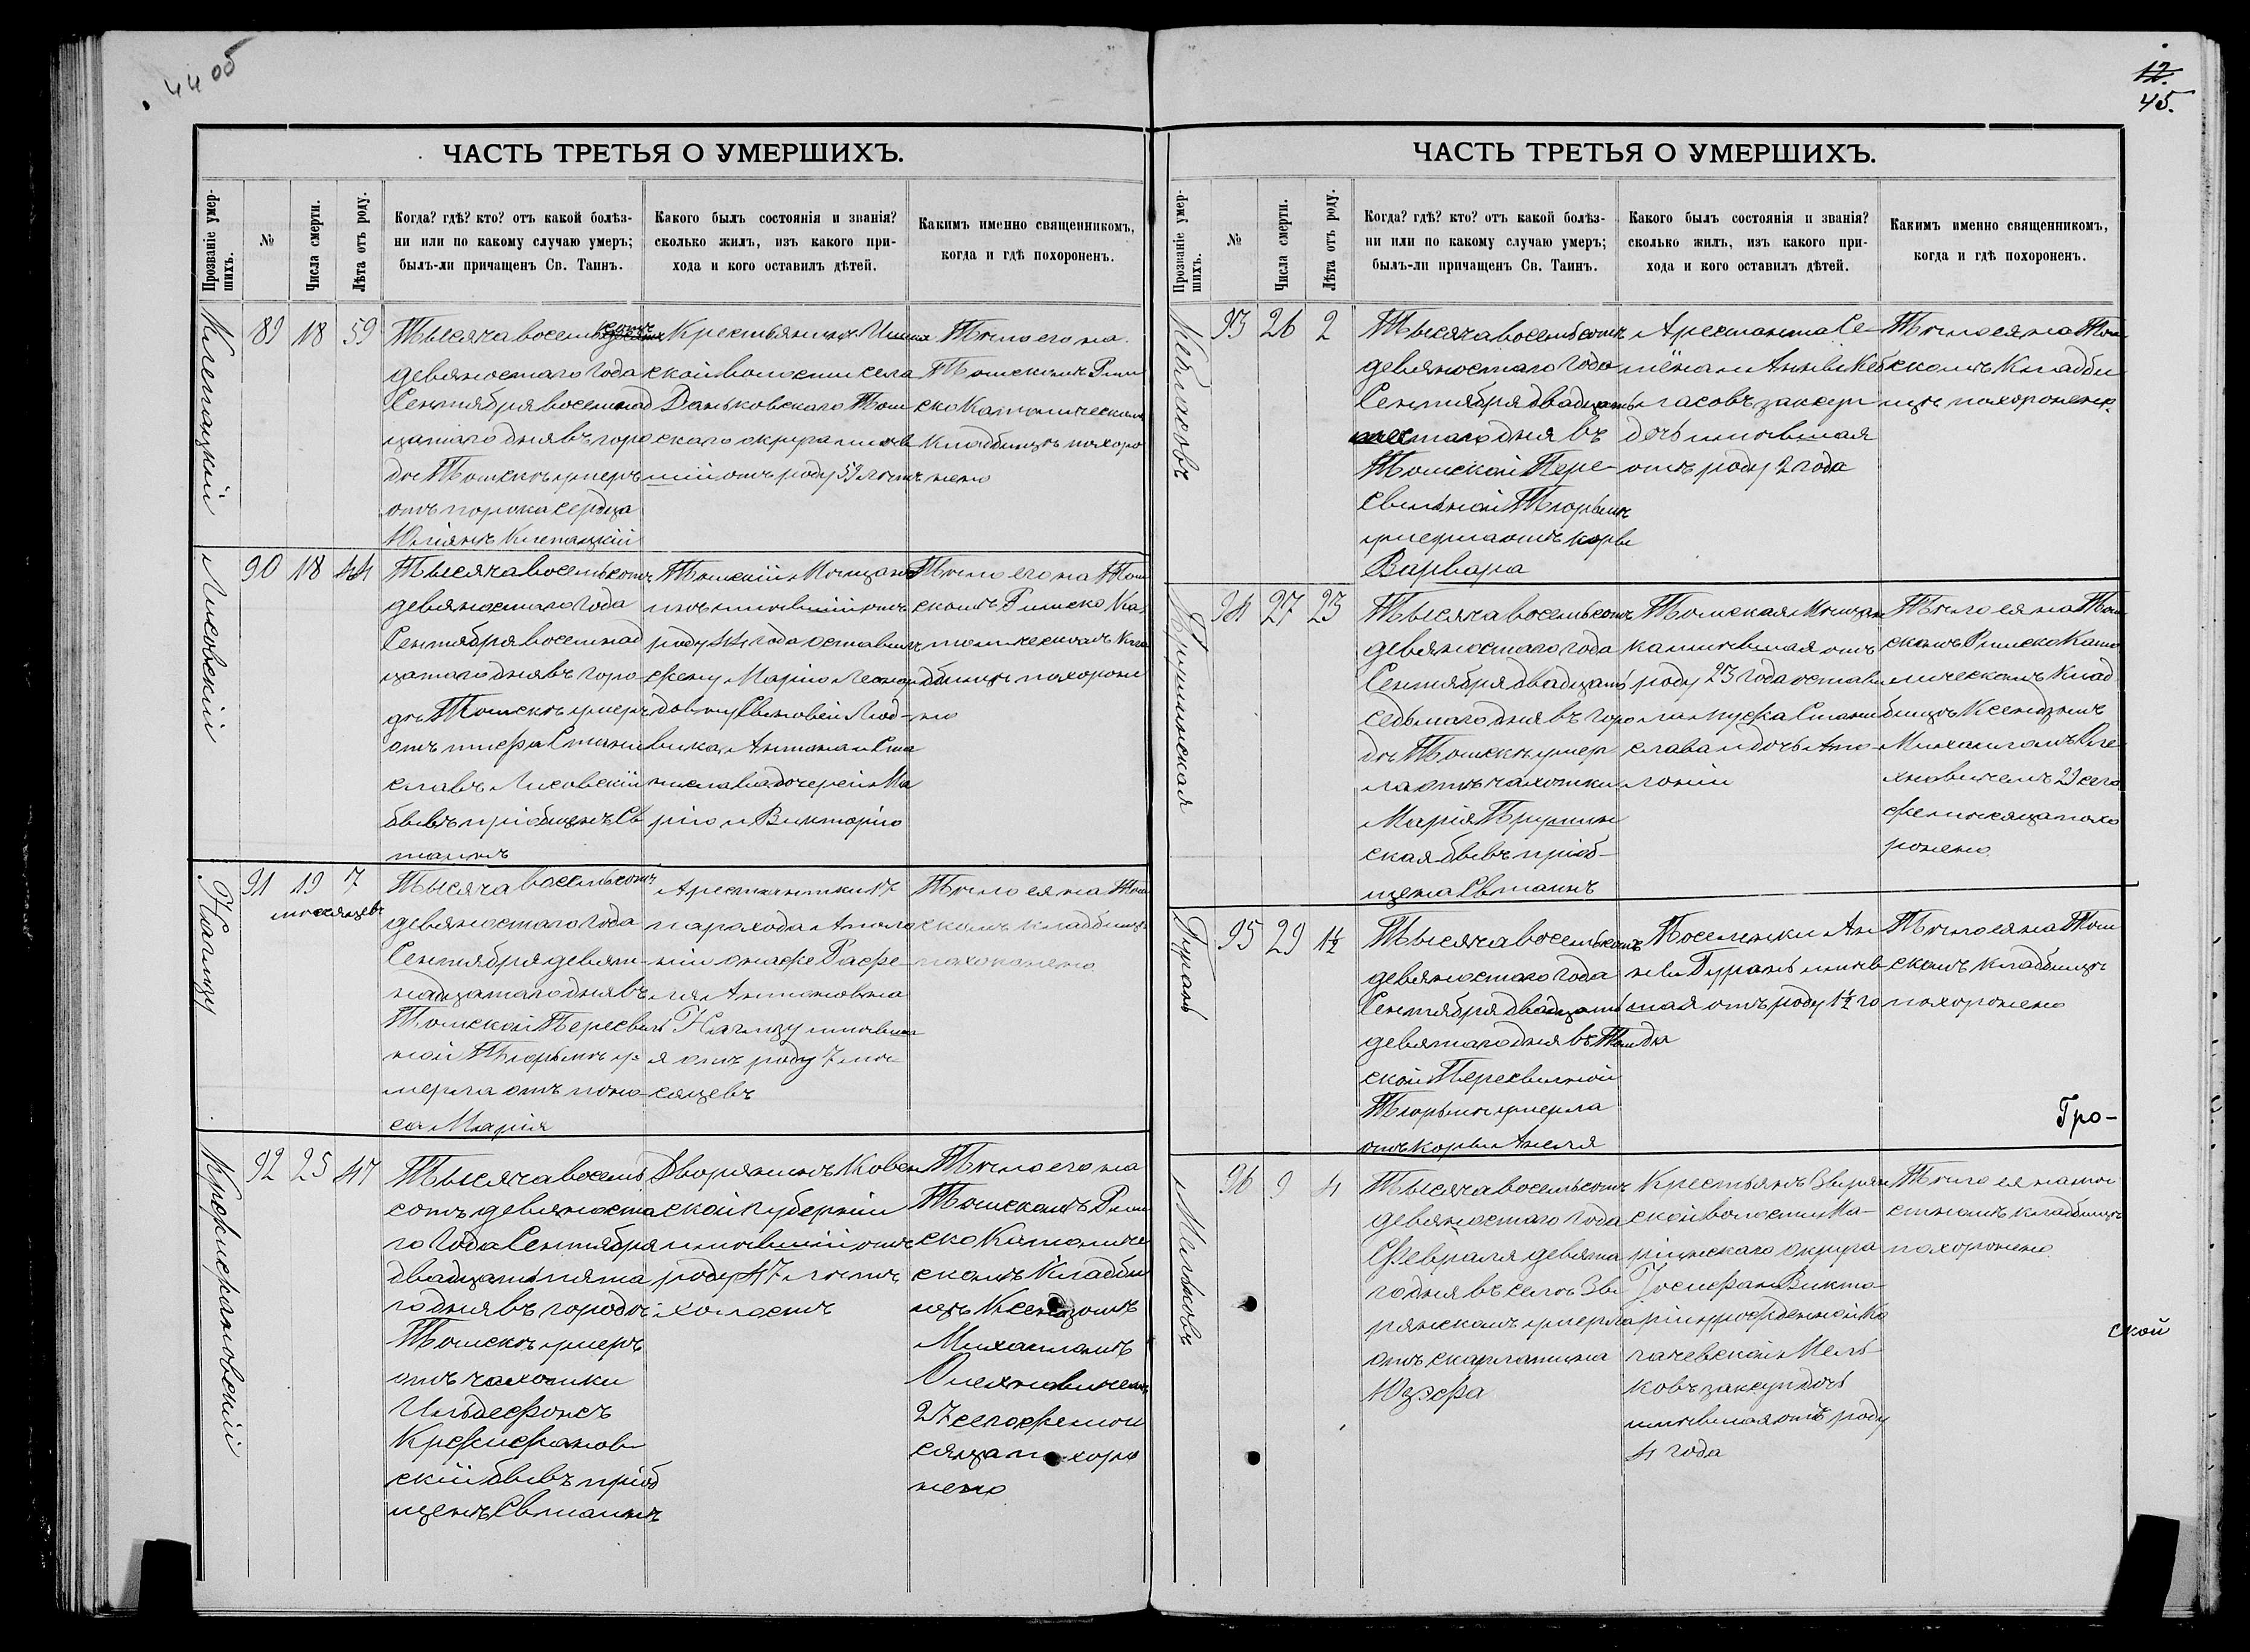 44 об
ЧАСТЬ ТРЕТЬЯ О УМЕРШИХЪ.
Прозваніе умер-
шихъ.
№
Числа смерти.
Лѣта отъ роду.
Когда? гдѣ? кто? отъ какой болѣз-
ни или по какому случаю умеръ;
былъ-ли причащенъ Св. Таинъ.
Какого былъ состоянія и званія?
сколько жилъ, изъ какого при-
хода и кого оставилъ дѣтей.
Какимъ именно священникомъ,
когда и гдѣ похороненъ.
Клепацкій
89
18
59
Тысяча восемьсотъ
девяностаго года
Сентября восемнад
цатаго дня въ горо
дѣ Томскѣ умеръ
отъ порока сердца
Юліянъ Клепацкій
Крестьянинъ
ской волости села
Даньковскаго Том
скаго округа имѣв
шій отъ роду 59 лѣтъ
Тѣло его на
Томскомъ Рим
ско Католическомъ
кладбищѣ похоро
нено
Лисовскій
90
18
44
Тысяча восемьсотъ
девяностаго года
Сентября восемнад
цатаго дня въ горо
дѣ Томскѣ умеръ
отъ тифа Стани
славъ Лисовскій
бывъ пріобщенъ Св
таинъ
Томскій Мѣщани
нъ имѣвшій отъ
роду 44 года оставилъ
жену Марію
довну Сыновей Люд-
вика, Антона и Ста
нислава дочерей Ма
рію и Викторію
Тѣло его на Том
скомъ Римско Ка
толическомъ Кла
дбищѣ похороне
но
91
19
7
мѣсяцевъ
Тысяча восемьсотъ
девяностаго года
Сентября девят-
надцатаго дня въ
Томской Пересыль
ной Тюрьмѣ у-
мерла отъ поно
са Марія
Арестантки 17
парохода Аполо
ніи онаже Рафе-
ля Антоновна
имѣвша
я отъ роду 7 мѣ
сяцевъ
Тѣло ея на Том
скомъ кладбищѣ
похоронено
Кржижановскій
92
25
47
Тысяча восемь
сотъ девяноста
го года Сентября
двадцать пята
го дня въ городѣ
Томскѣ умеръ
отъ чахотки
Ильдефонсъ
Кржижанов
скій бывъ пріоб
щенъ Св таинъ
Дворянинъ Ковен
ской губерніи
имѣвшій отъ
роду 47 лѣтъ
холостъ
Тѣло его на
Томскомъ Рим
ско Католиче
скомъ Кладби
щѣ Ксендзомъ
Михаиломъ
Олехновичемъ
27 сего же мѣ
сяца похоро
нено
12.
45.
ЧАСТЬ ТРЕТЬЯ О УМЕРШИХЪ.
Прозваніе умер-
шихъ.
№
Числа смерти.
Лѣта отъ роду.
Когда? гдѣ? кто? отъ какой болѣз-
ни или по какому случаю умеръ;
былъ-ли причащенъ Св. Таинъ.
Какого былъ состоянія и званія?
сколько жилъ, изъ какого при-
хода и кого оставилъ дѣтей.
Какимъ именно священникомъ,
когда и гдѣ похороненъ.
Кебласовъ
93
26
2
Тысяча восемьсотъ
девяностаго года
Сентября двадцать
шестаго дня въ
Томской Пере-
сыльной Тюрьмѣ
умерла отъ кори
Варвара
Арестанта Се-
мёна и Анны Кеб
ласовъ закон
дочь имѣвшая
отъ роду 2 года
Тѣло ея на Том
скомъ Кладби
щѣ похоронено
94
27
23
Тысяча восемьсотъ
девяностаго года
Сентября двадцать
седьмаго дня въ горо
дѣ Томскѣ умер
ла отъ чахотки
Марія
ская бывъ пріоб-
щена Св таинъ
Томская Мѣщан
ка имѣвшая отъ
роду 23 года остави
ла мужа Стани
слава и дочь Апо
лонію
Тѣло ея на Том
скомъ Римско Като
лическомъ Клад
бищѣ Ксендзомъ
Михаиломъ Оле
хновичемъ 29 сего
же мѣсяца похо
ронено
Гурань
95
29
1½
Тысяча восемьсотъ
девяностаго года
Сентября двадцать
девятаго дня въ Том
ской Пересыльной
Тюрьмѣ умерла
отъ кори Анеля
Поселенки Ан
ны Гурань имѣв
шая отъ роду 1½ го
да
Тѣло ея на Том
скомъ кладбищѣ
похоронено
Гро-
Мельковъ
96
9
4
Тысяча восемьсотъ
девяностаго года
Февраля девята
го дня въ селѣ Зы
рянскомъ умерла
отъ скарлатина
Юзефа
Крестьянъ Зырян
ской волости Ма-
ріинскаго округа
Іосифа и Викто
ріи урожденной Ко
гачевской Мель
ковъ закон дочь
имѣвшая отъ роду
4 года
Тѣло ея на мѣ
стномъ кладбищѣ
похоронено
ской